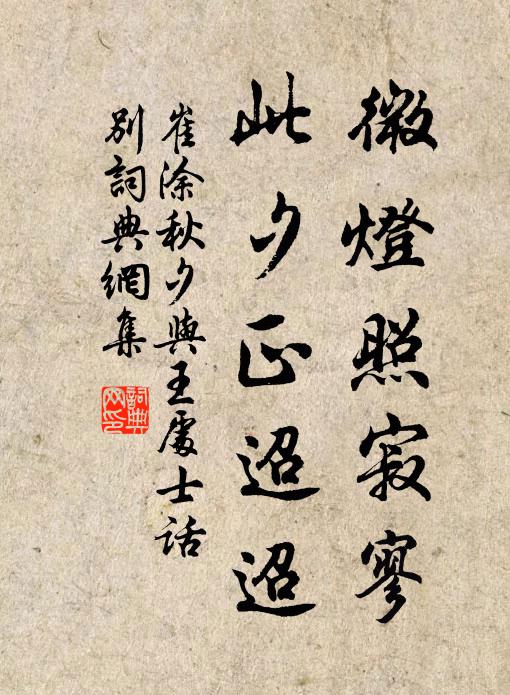 微燈照寂寥
此夕正迢迢
崔涂秋夕與王處士話
別詞典網集
詞典
网印